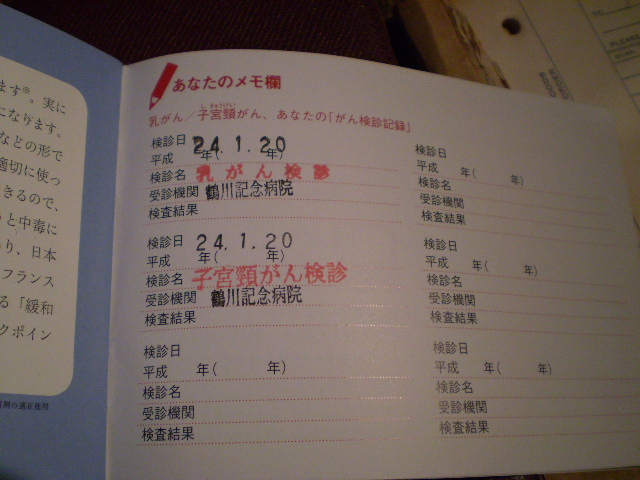 ます※。実に
になります。
などの形で
適切に使っ
きるので、
と中毒に
り、日本
フランス
る「緩和
クポイン
剤の適正使用
あなたのメモ欄
乳がん／子宮頸がん、あなたの「がん検診記録」
しきゅうけい
検診日 24.1.20
平成 年( 年)
検診名 乳がん検診
受診機関 鶴川記念病院
検査結果
検診日 24.1.20
平成 年( 年)
検診名 子宮頸がん検診
受診機関 鶴川記念病院
検査結果
検診日
平成 年( 年)
検診名
受診機関
検査結果
検診日
平成 年( 年)
検診名
受診機関
検査結果
検診日
平成 年( 年)
検診名
受診機関
検査結果
検診日
平成 年( 年)
検診名
受診機関
検査結果
TO
PLEASE